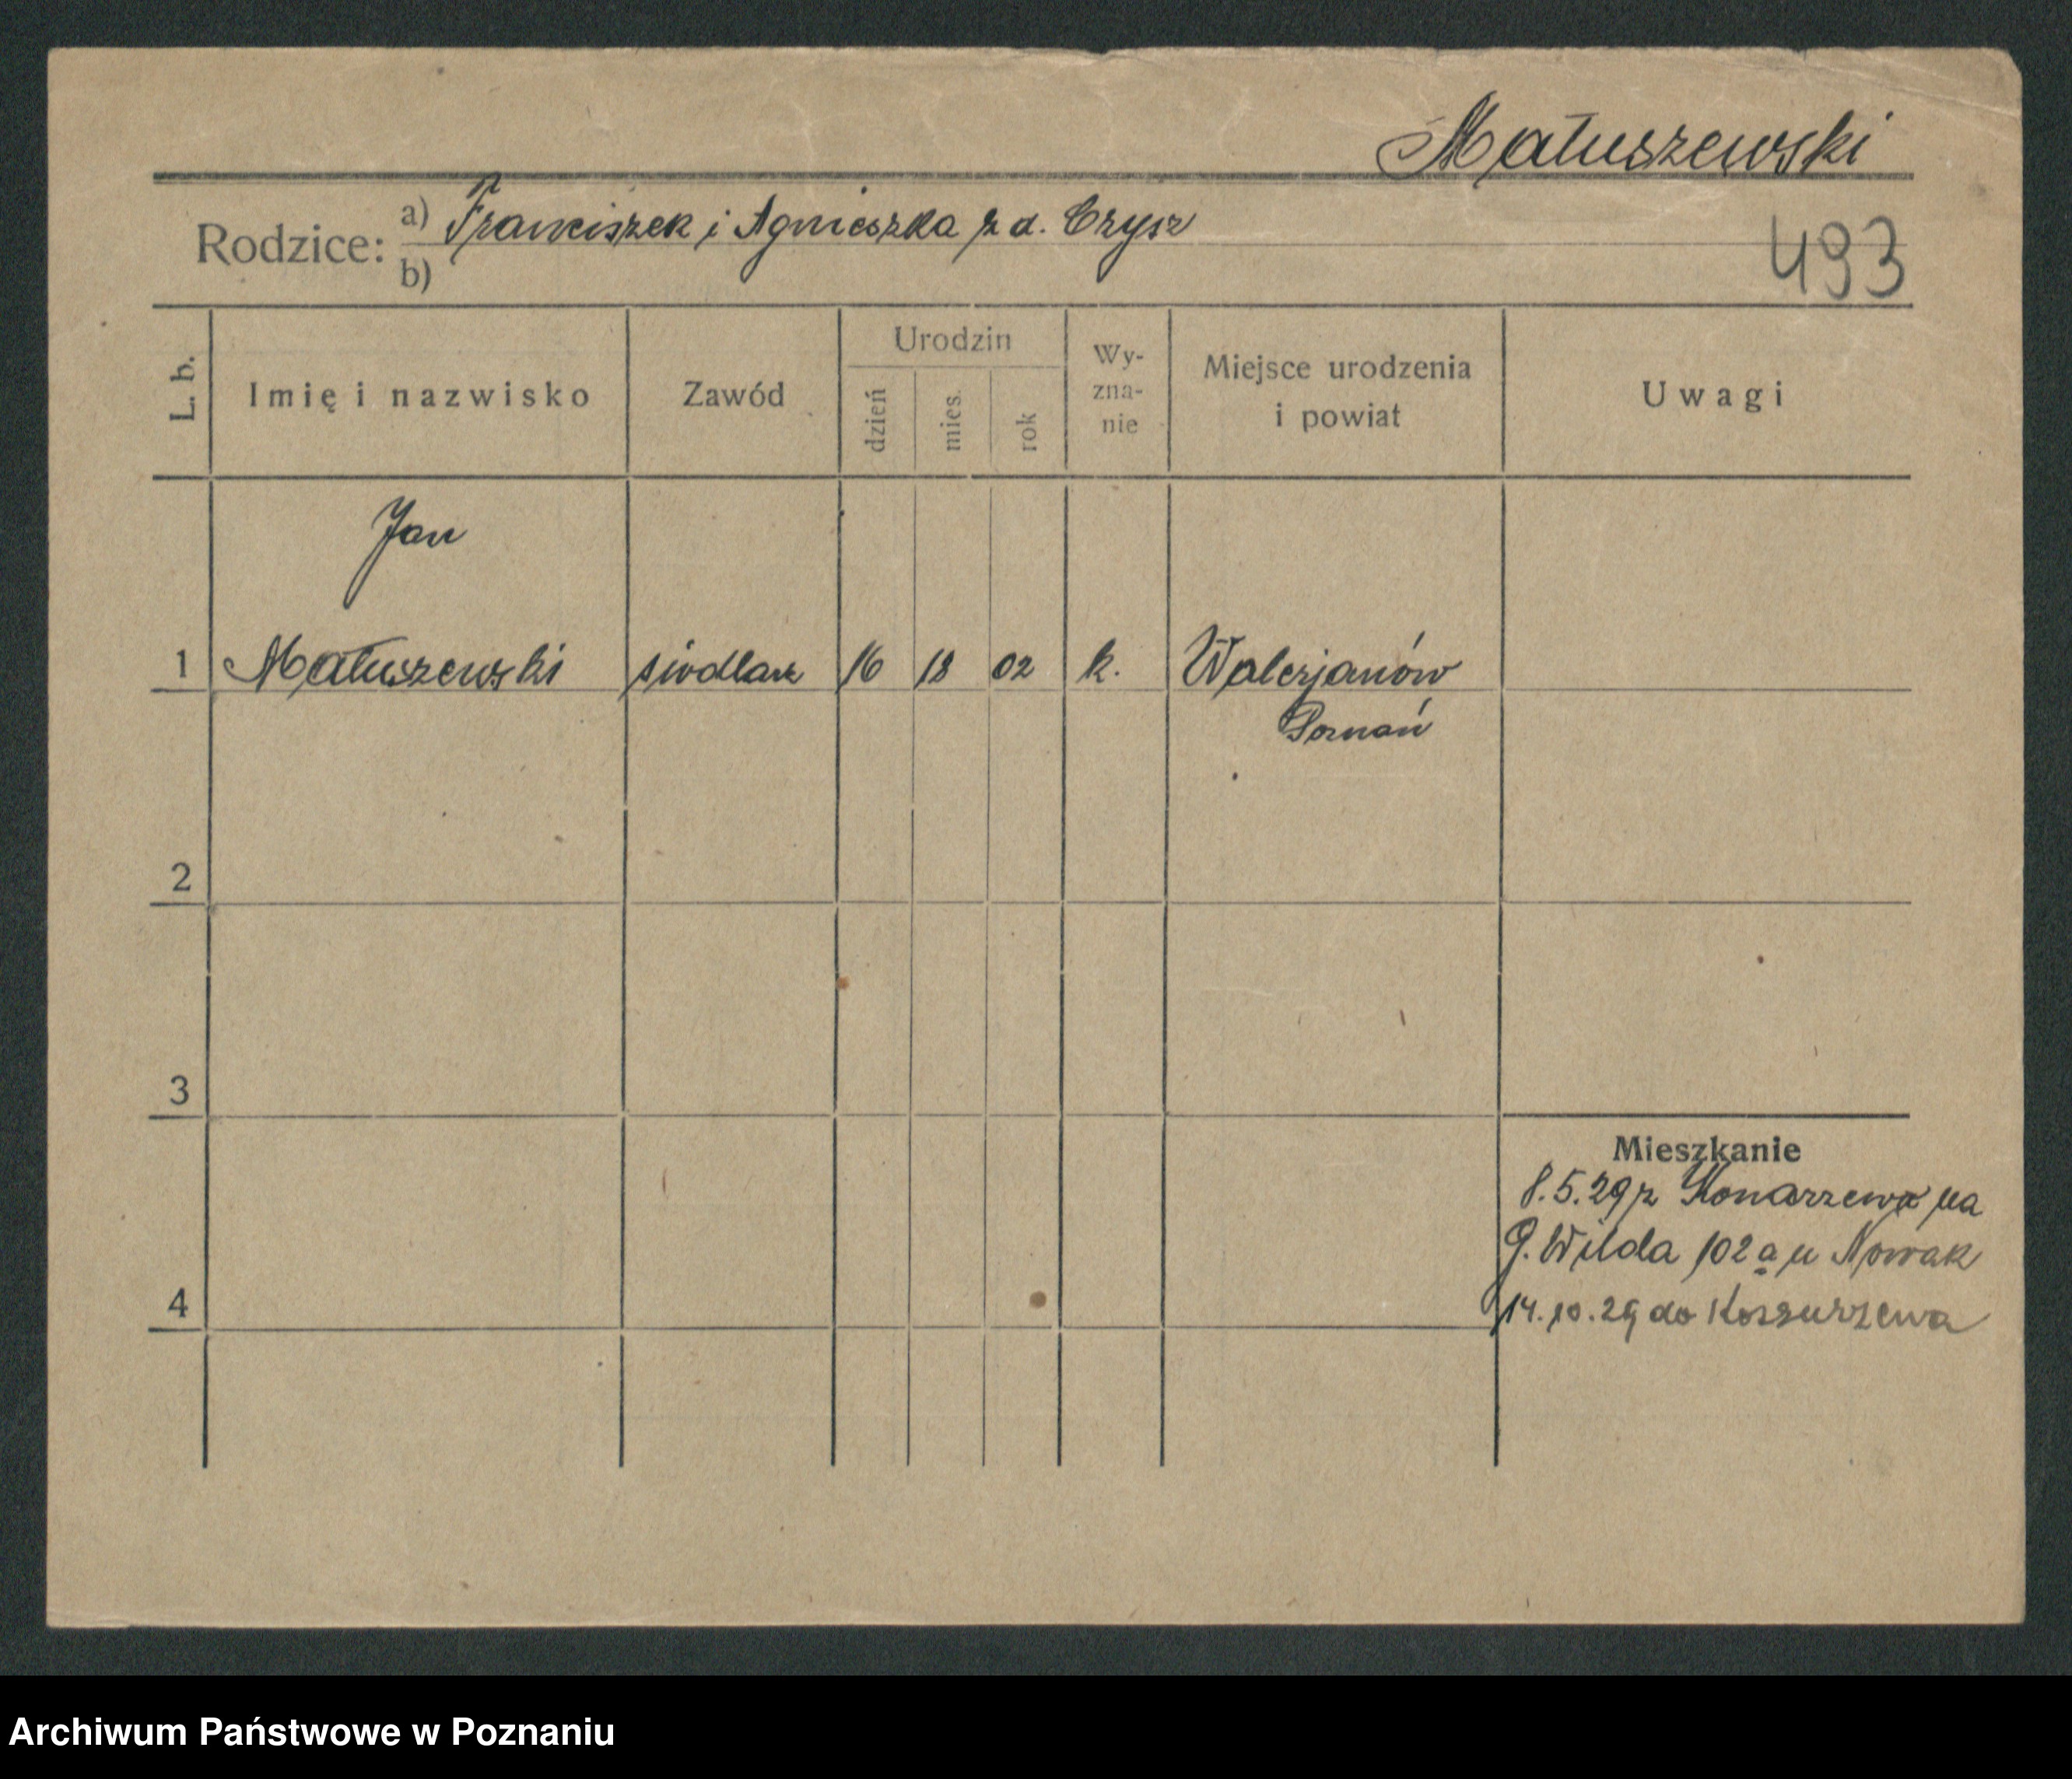 Matuszewski
Rodzice: a) Franciszek i Agnieszka z d. Czysz
b)
493
L. b.
Imię i nazwisko
Zawód
Urodzin
dzień
mies.
rok
Wy-
zna-
nie
Miejsce urodzenia
i powiat
Uwagi
Jan
1 Matuszewski siodlarz 16 18 02 k. Walerjanów
Poznań
2
3
Mieszkanie
8.5.29 z Konarzewa na
G. Wilda 102 a u Nowak
4
14.10.29 do
Archiwum Państwowe w Poznaniu